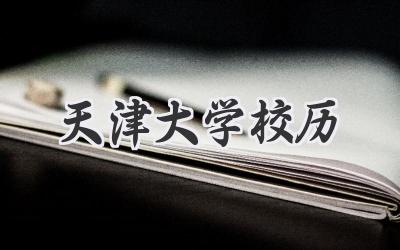 天津大学校历